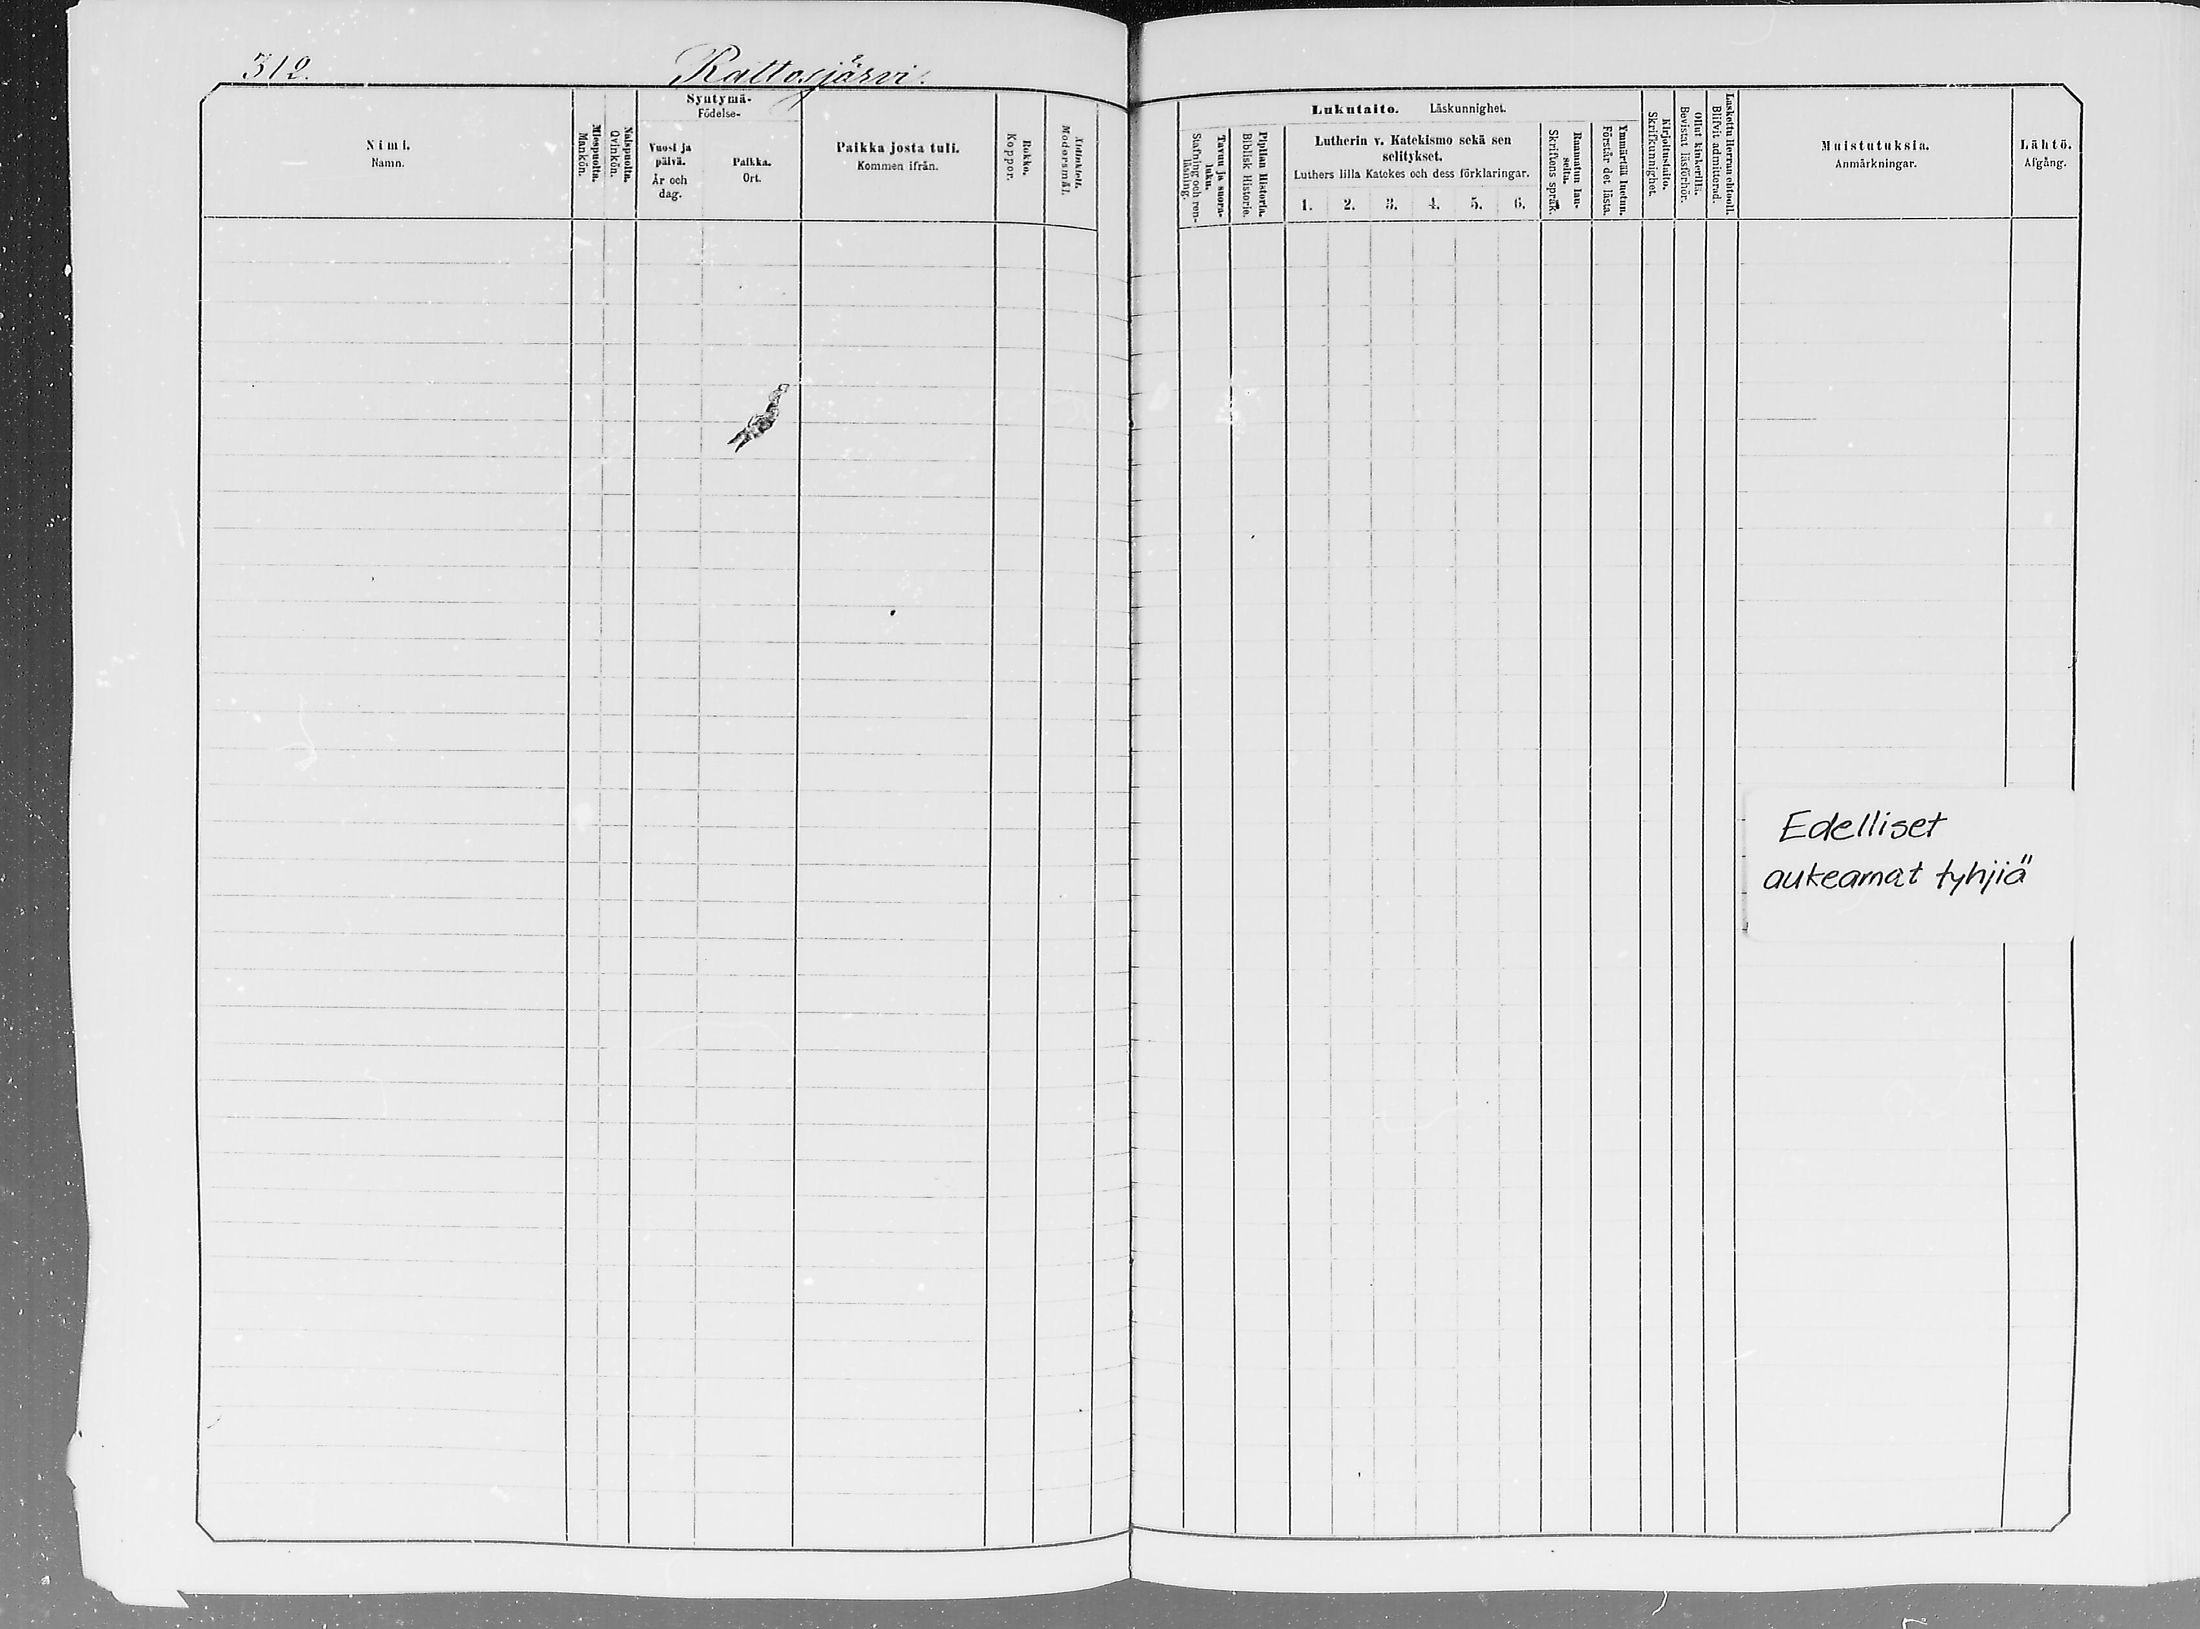 312.
Rattosjärvi.
Nimi.
Namn.
Miespuolta.
Mankön.
Naispuolta.
Qvinkön.
Syntymä-
Födelse-
Vuosi ja
päivä.
År och
dag.
Paikka.
Ort.
Paikka josta tuli.
Kommen ifrån.
Rokko.
Koppor.
Äidinkieli.
Modersmål.
Lukutaito. Läskunnighet.
Tavuu ja suora-
luku.
Stafning och ren-
läsning.
Piplian Historia.
Biblisk Historie.
Lutherin v. Katekismo sekä sen
selitykset.
Luthers lilla Katekes och dess förklaringar.
1. 2. 3. 4. 5. 6.
Raamatun lau-
seita.
Skriftens språk.
Ymmärtää luetun.
Förstår det lästa.
Kirjoitustaito.
Skrifkunnighet.
Ollut kinkerillä.
Bevistat läsförhör.
Laskettu Herran ehtooll.
Blifvit admitterad.
Muistutuksia.
Anmärkningar.
Lähtö.
Afgång.
Edelliset
aukeamat tyhjiä